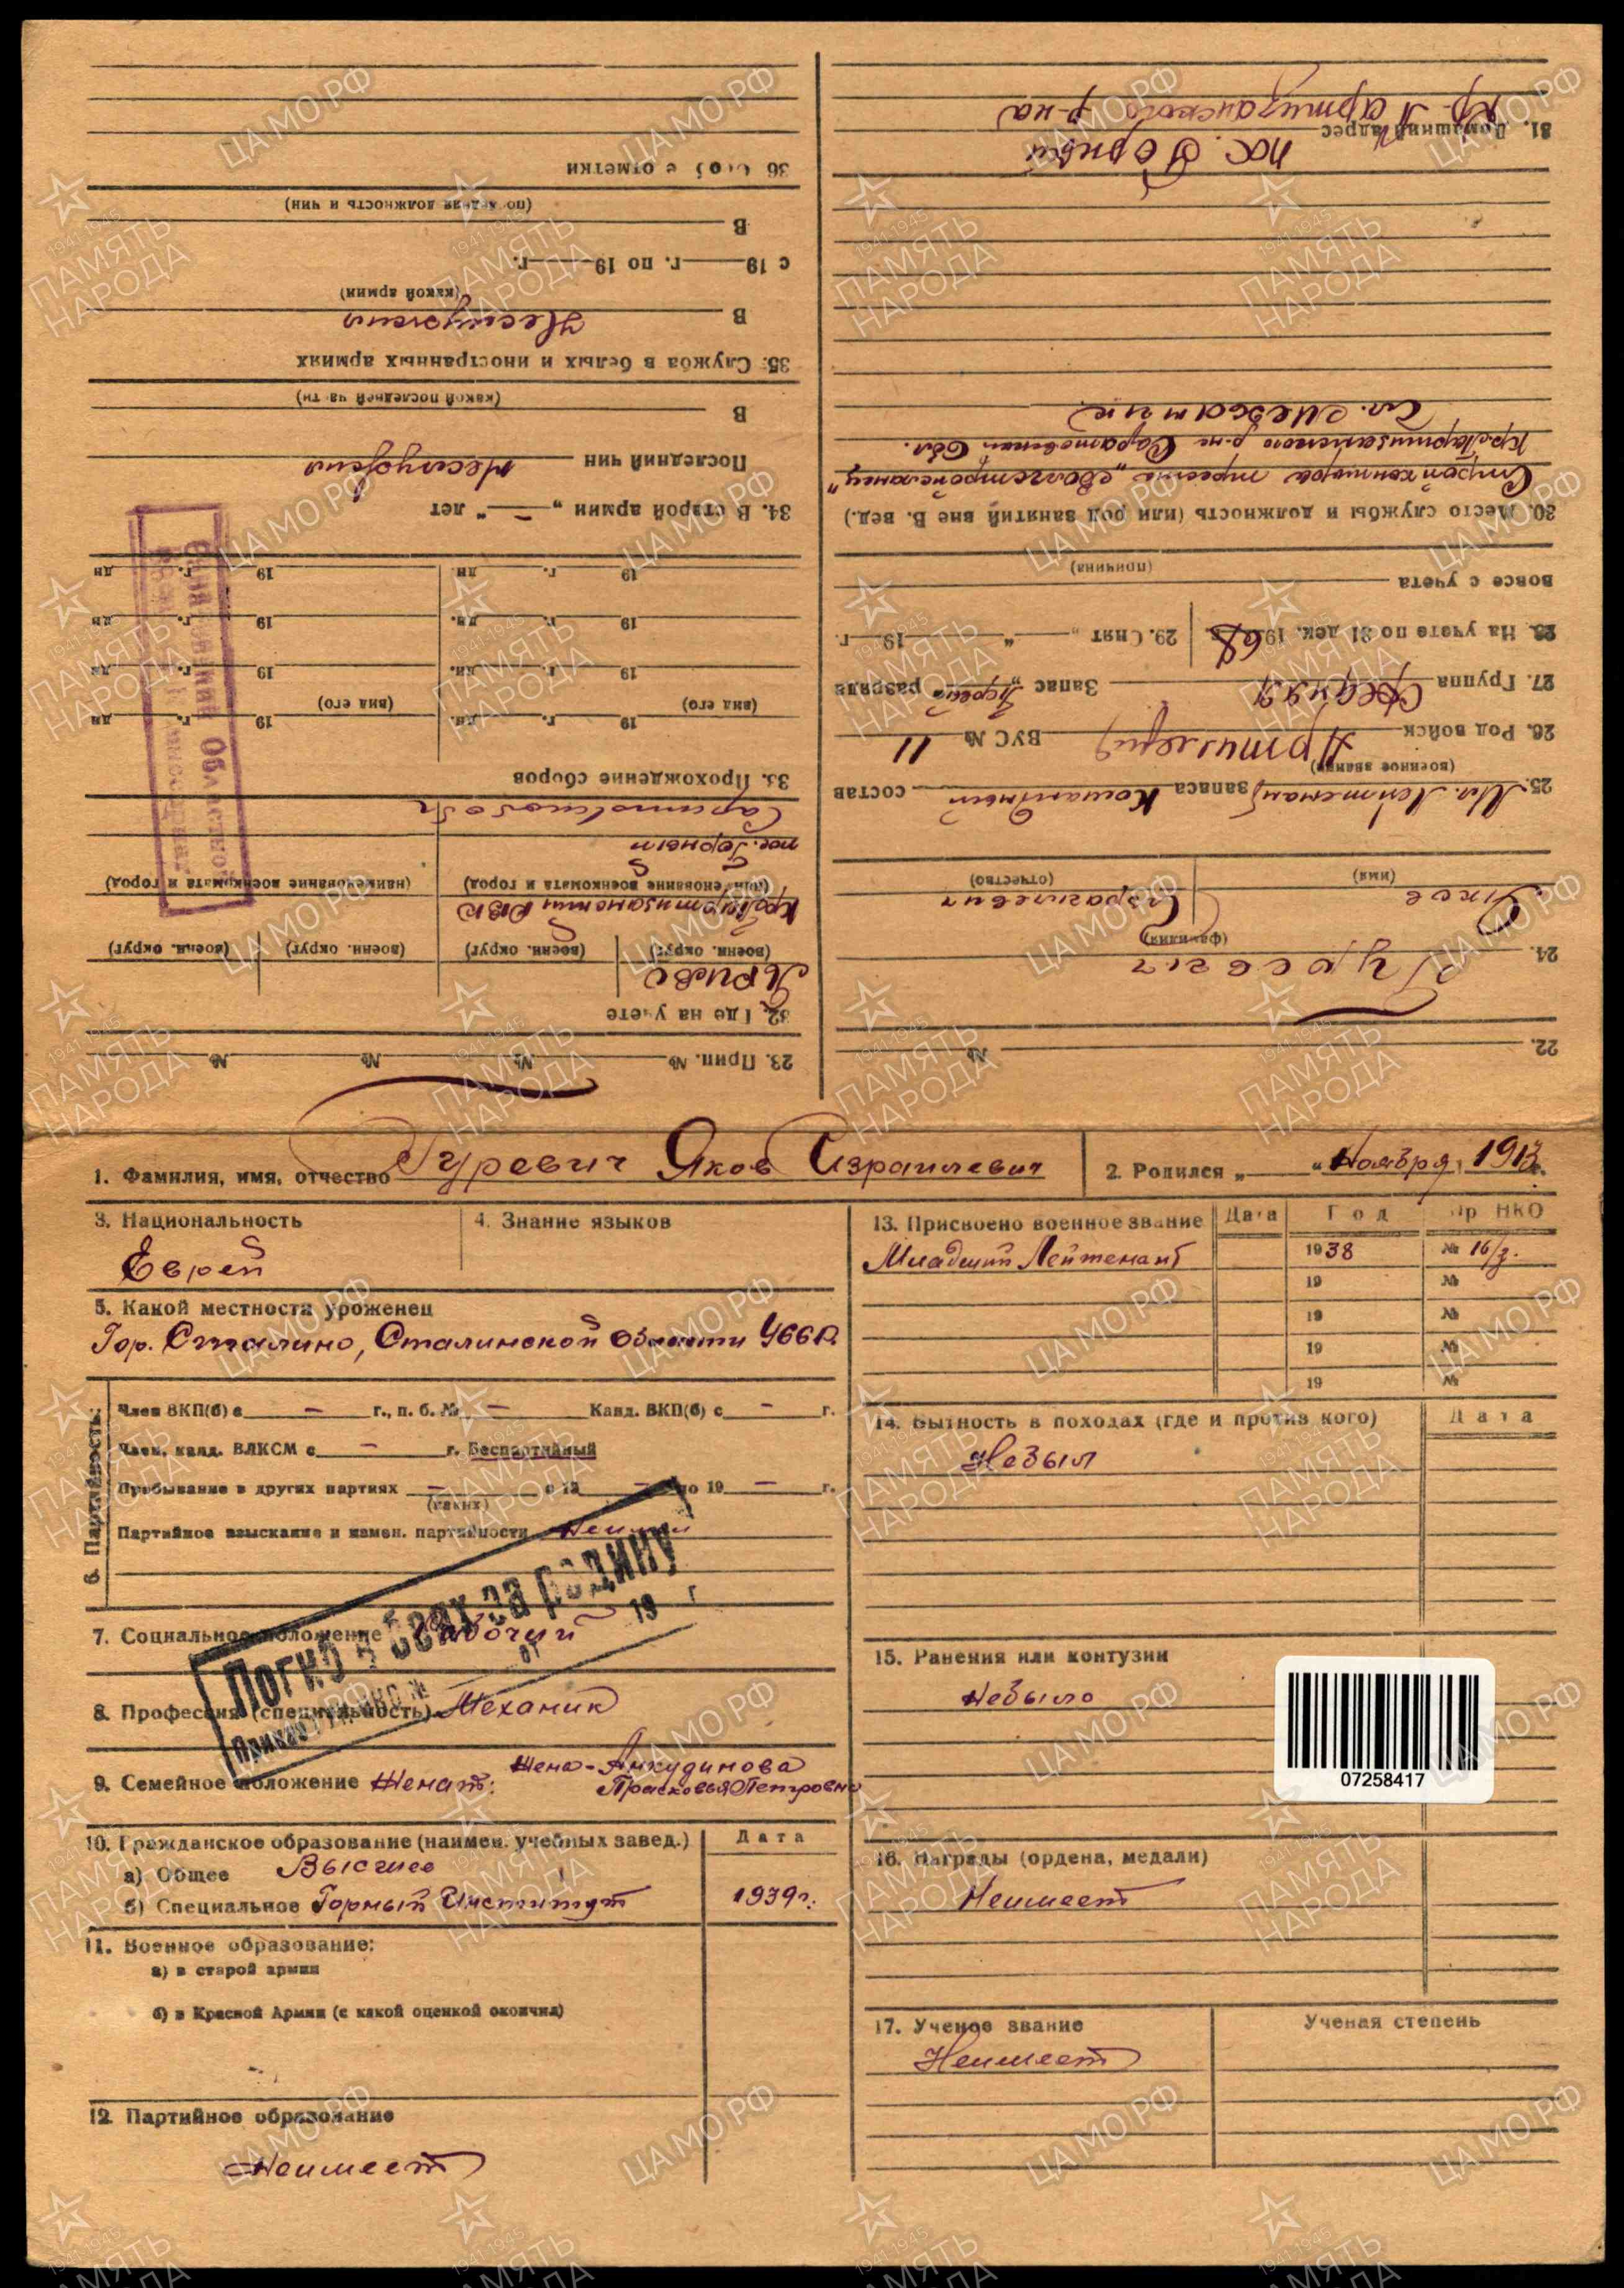 1. Фамилия, имя, отчество Гуревич Яков Израилевич
2. Родился „ — " Ноября 1913 г.
3. Национальность
Еврей
4. Знание языков
5. Какой местности уроженец
Гор. Сталино, Сталинской области УССР.
6. Партийность:
Член ВКП(б) с — г., п. б. № — Канд. ВКП(б) с — г.
Член, канд. ВЛКСМ с — г. Беспартийный
Пребывание в других партиях — с 19 — по 19 — г.
(каких)
Партийное взыскание и измен. партийности
7. Социальное положение Рабочий
Погиб в боях за родину
от 19 г
8. Профессия (специальность) Механик
9. Семейное положение Женат:
Жена - Анкудинова
Прасковья Петровна
10. Гражданское образование (наимен. учебных завед.)
Дата
а) Общее Высшее
б) Специальное Горный Институт
1939 г.
11. Военное образование:
а) в старой армии
б) в Красной Армии (с какой оценкой окончил)
12. Партийное образование
Неимеет
13. Присвоено военное звание
Дата
Год
Пр НКО
Младший Лейтенант
1938
№ 16/з.
19 №
19 №
19 №
19 №
14. Бытность в походах (где и против кого)
Дата
Небыл
15. Ранения или контузии
Небыло
07258417
16. Награды (ордена, медали)
Неимеет
17. Ученое звание
Ученая степень
Неимеет
22. №
23. Прип. № № № №
24. Гуревич
(фамилия)
Яков
Израилевич
(имя)
(отчество)
25. Мл. Лейтенант запаса Командный состав
(военное звание)
26. Род войск Артиллерия ВУС № 11
27. Группа Средняя Запас „ " разряда
28. На учете по 31 дек. 1968 г.
29. Снят „ — " 19 г.
вовсе с учета
(причина)
30. Место службы и должность (или род занятий вне В. вед.)
Стройконтора треста „Волгостройсланец"
Кр-Партизанского р-на Саратовская обл.
Гл. Механик
31. Домашний адрес
пос. Горный
Кр-Партизанского р-на
32. Где на учете
ПриВО
(военн. округ)
(военн. округ)
(военн. округ)
(военн. округ)
КрПартизанский РВК
(наименование военкомата и город)
(наименование военкомата и город)
пос. Горный
Саратовской обл
33. Прохождение сборов
(вид его)
19 г. дн.
(вид его)
19 г. дн
19 г. дн.
19 г. дн
19 г. дн.
19 г. дн
19 г. дн.
19 г. дн
34. В старой армии „ — " лет
Последний чин неслужил
В
(какой последней части)
35. Служба в белых и иностранных армиях
В Неслужил
(какой армии)
с 19 г. по 19 г.
В
(последняя должность и чин)
36 Особые отметки
ЦА МО РФ
1941-1945
ПАМЯТЬ
НАРОДА